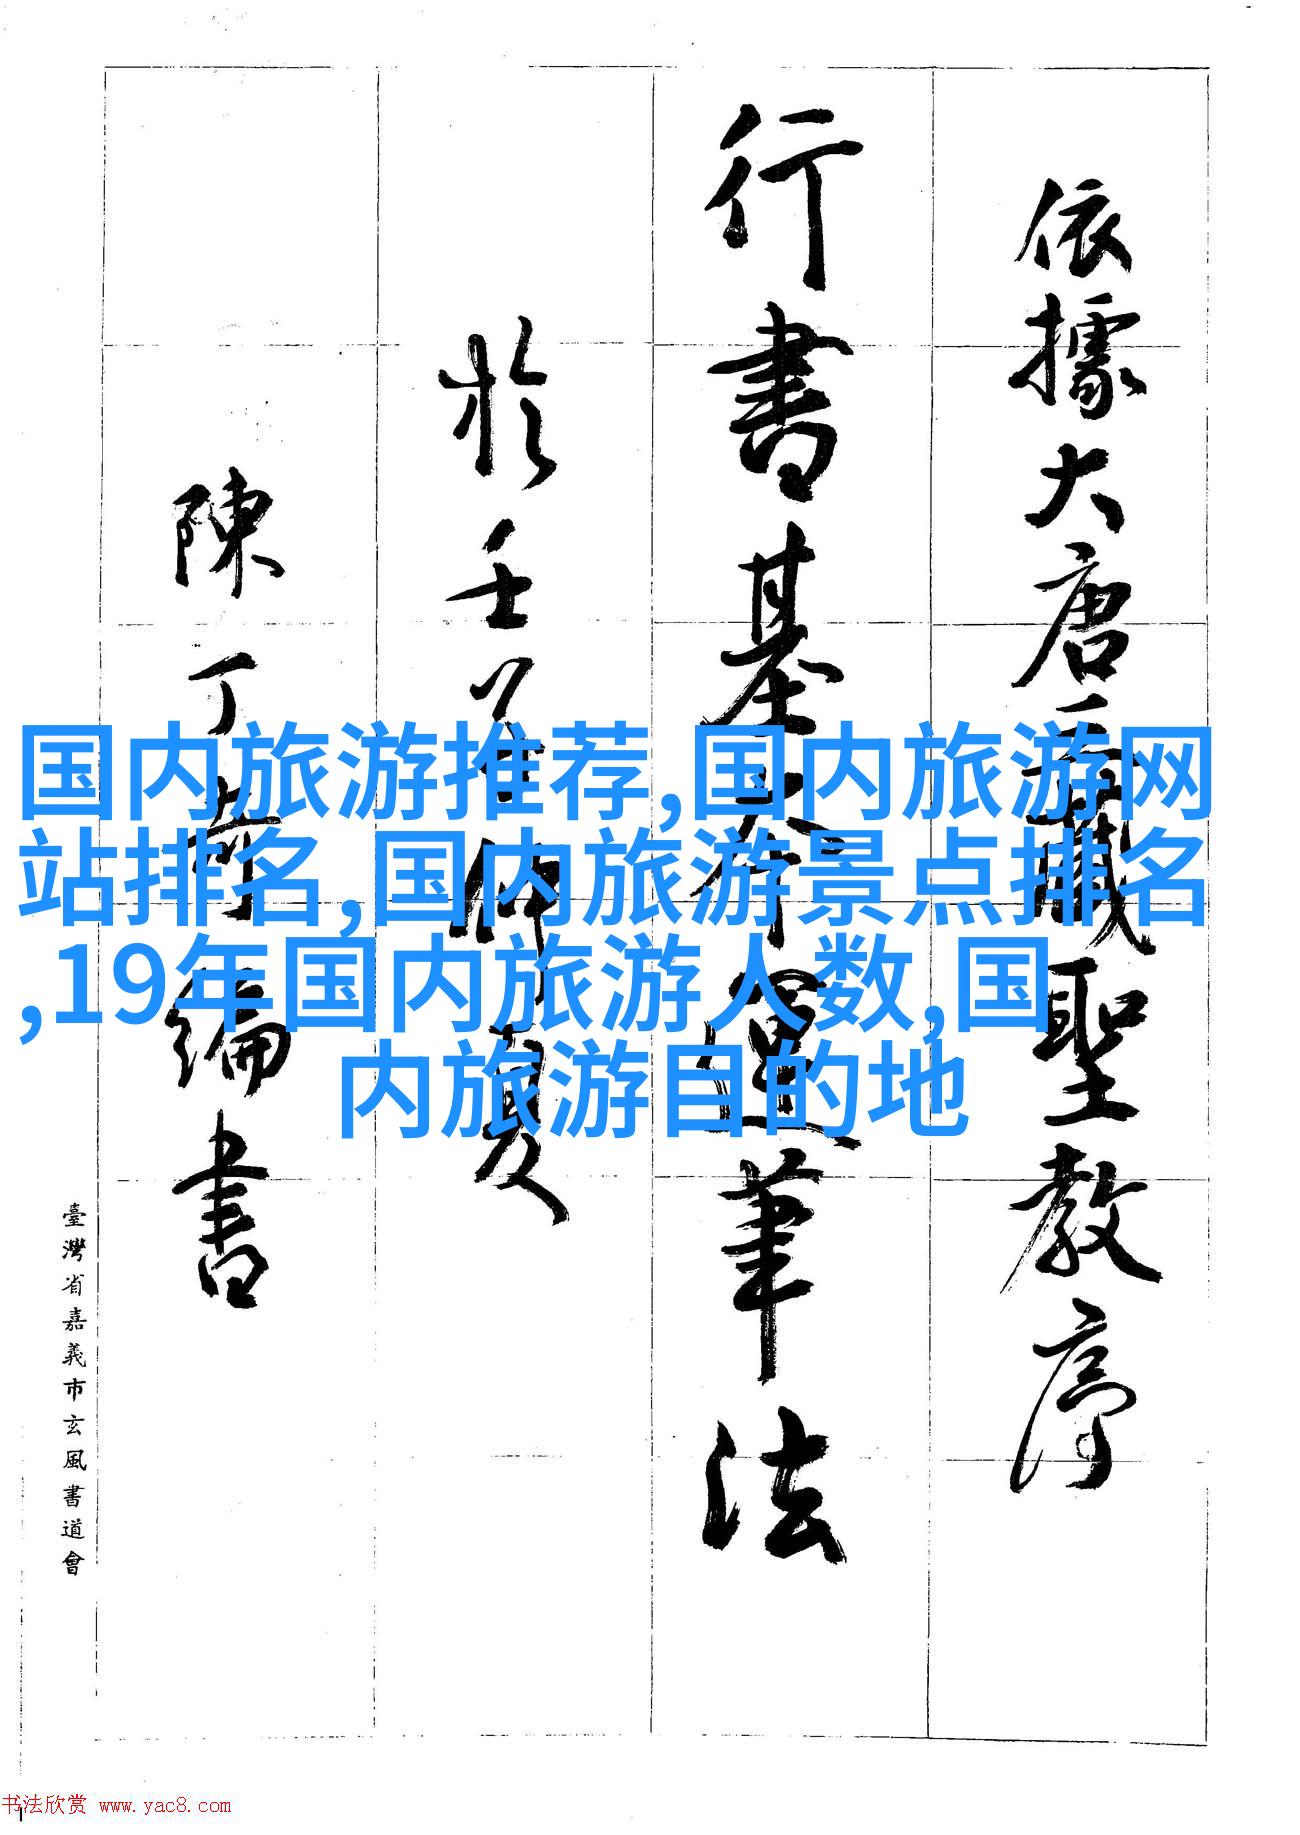 依據大唐三藏聖教序
行書基本運筆法
於壬午仲夏
陳丁奇編書
臺灣省嘉義市玄風書道會
国内旅游推荐,国内旅游网
站排名,国内旅游景点排名
,19年国内旅游人数,国
内旅游目的地
书法欣赏 www.yac8.com
1